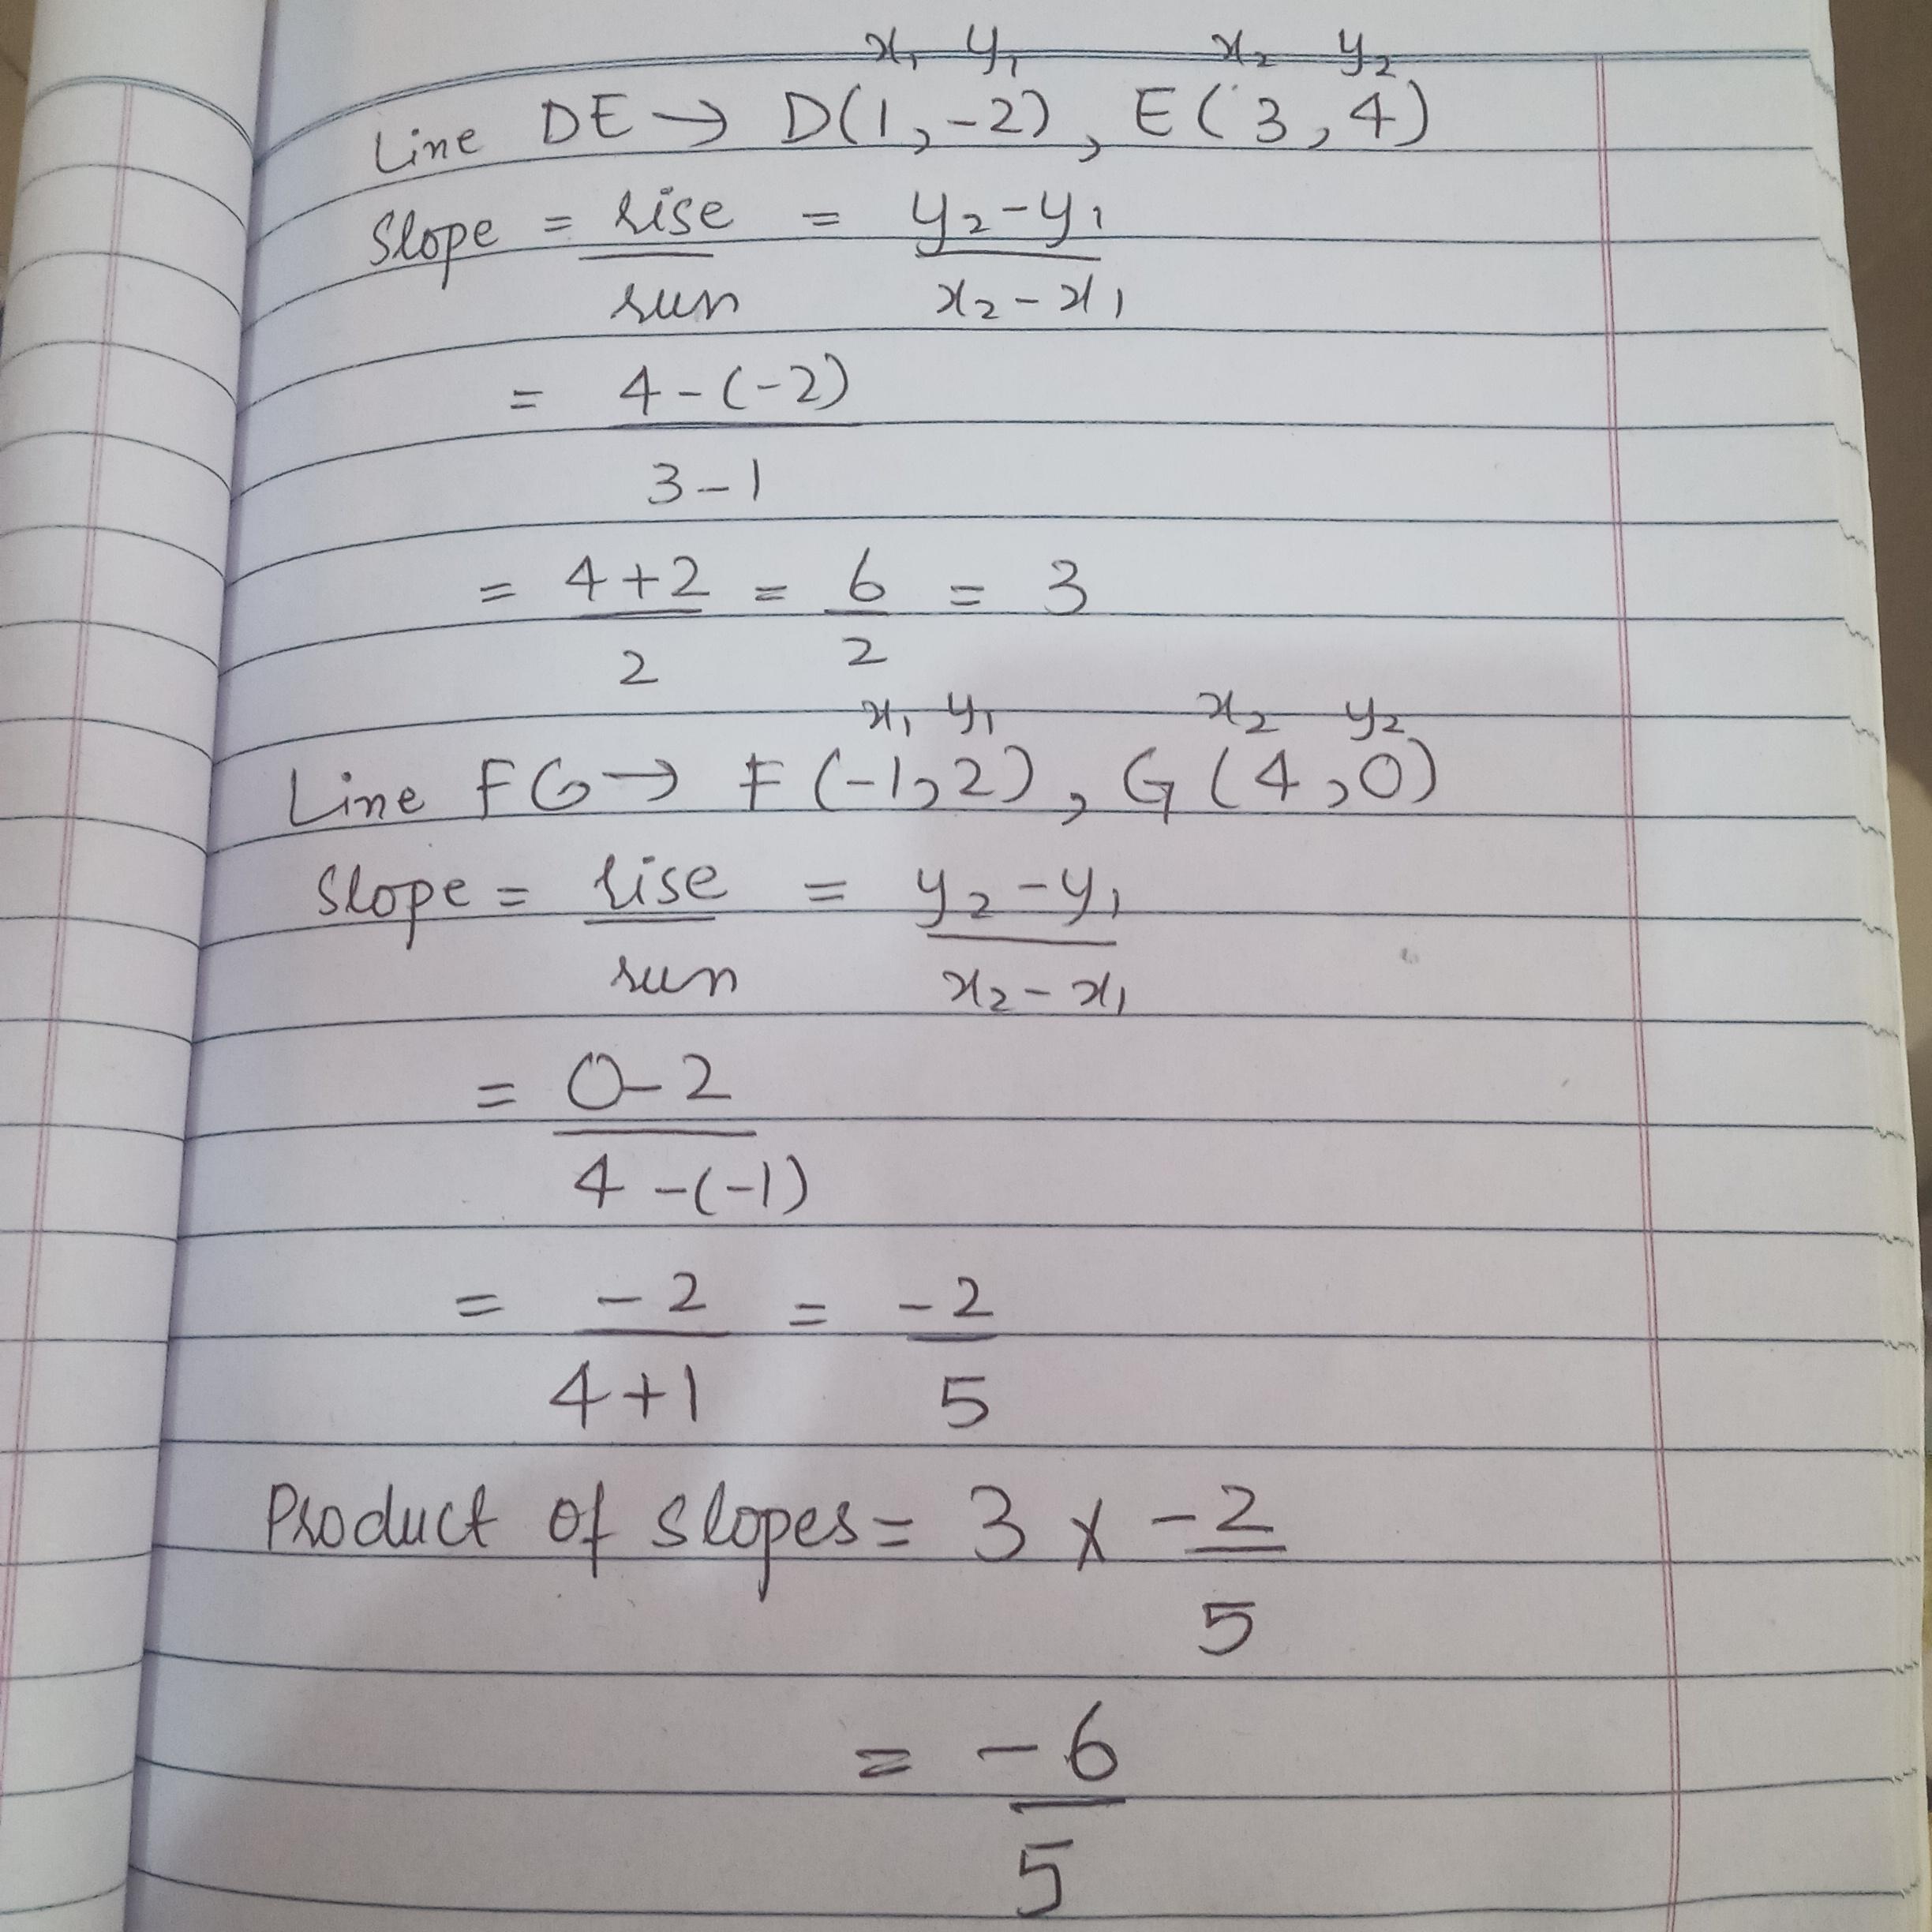 x₁ y₁ x₂ y₂
Line DE → D(1,-2), E(3,4)
Slope = rise = y₂-y₁
run x₂-x₁
= 4-(-2)
3-1
= 4+2 = 6 = 3
2 2
x₁ y₁ x₂ y₂
Line FG → F(-1,2), G(4,0)
Slope = rise = y₂-y₁
run x₂-x₁
= 0-2
4-(-1)
= -2 = -2
4+1 5
Product of slopes = 3 x -2
5
= -6
5